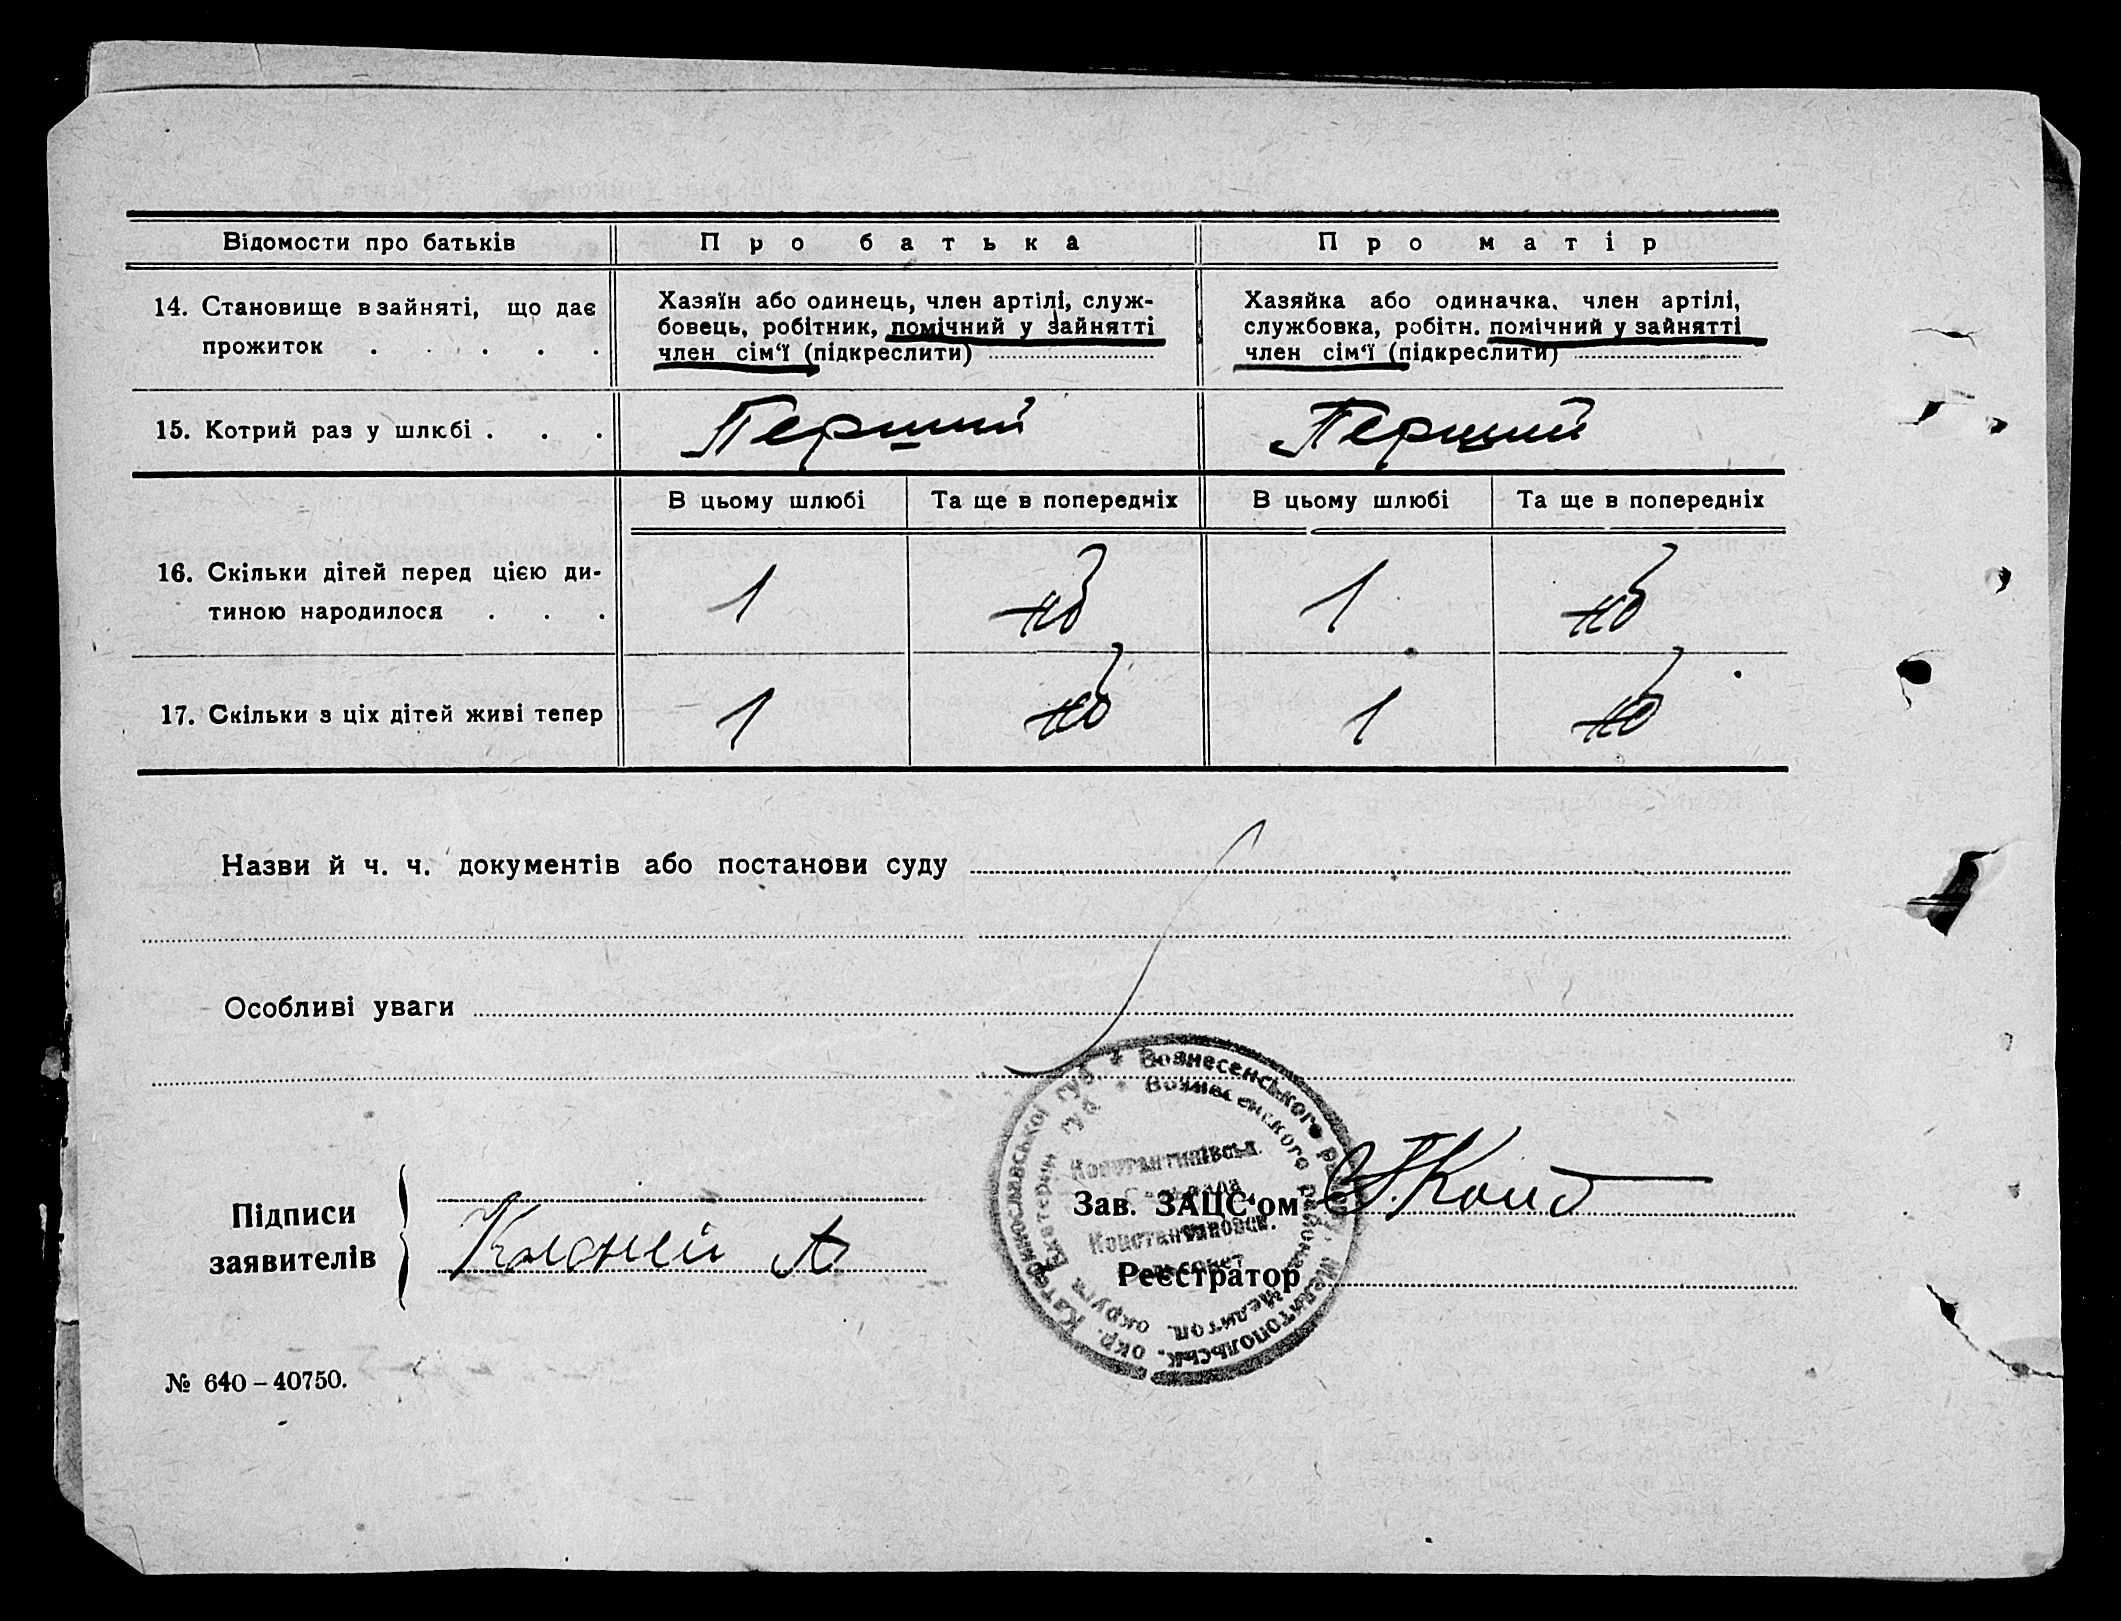 Відомости про батьків
Про батька
Про матір
14. Становище в зайняті, що дає
прожиток . . . . .
Хазяїн або одинець, член артілі, служ-
бовець, робітник, помічний у зайнятті
член сім‘ї (підкреслити)
Хазяйка або одиначка, член артілі,
службовка, робітн. помічний у зайнятті
член сім‘ї (підкреслити)
15. Котрий раз у шлюбі . . .
Перший
Перший
В цьому шлюбі
Та ще в попередніх
В цьому шлюбі
Та ще в попередніх
16. Скільки дітей перед цією ди-
тиною народилося . . .
1
1
17. Скільки з ціх дітей живі тепер
1
1
Назви й ч. ч. документів або постанови суду
Особливі уваги
Вознесенського району, Мелитопольськ. окр. Катеринославської губ.
Вознесенского района Мелитоп. округа Екатерин губ.
Константинівськ.
Константиновск.
Підписи
заявителів
Зав. ЗАЦС‘ом
Реєстратор
№ 640–40750.